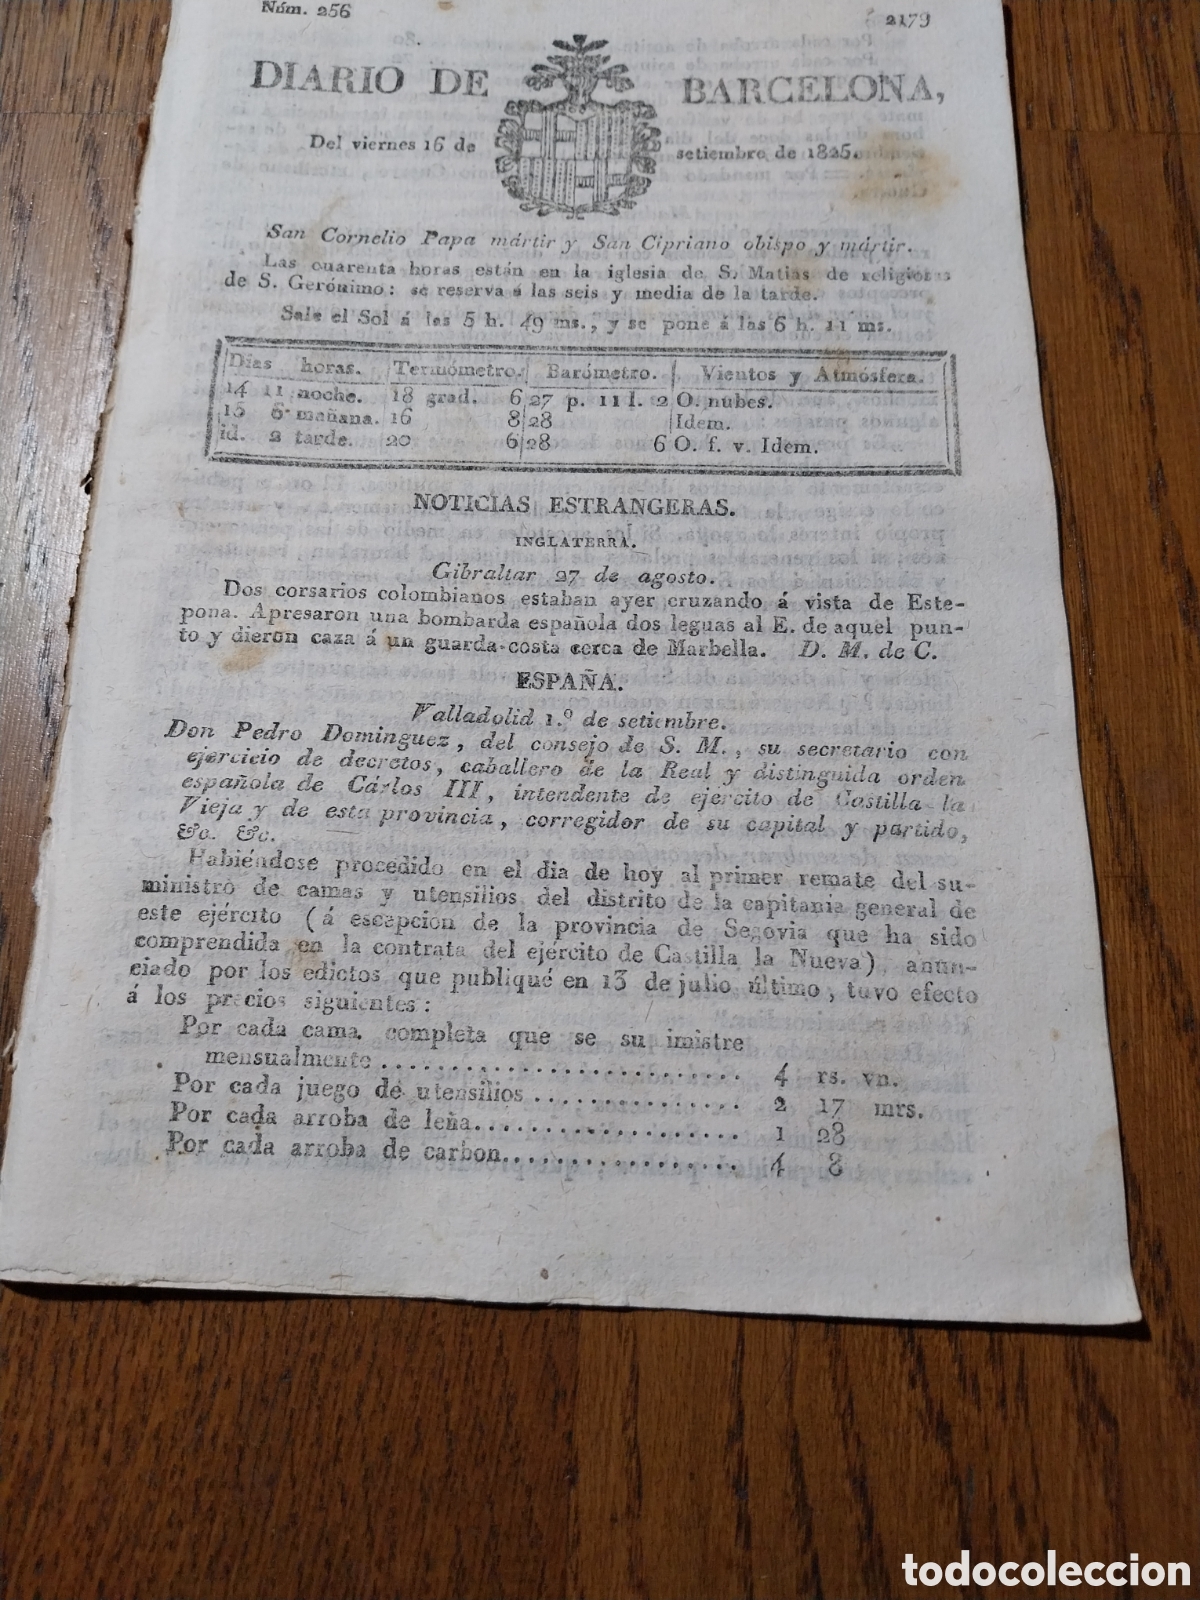 Núm. 256 2179
DIARIO DE BARCELONA,
Del viernes 16 de setiembre de 1825.
San Cornelio Papa mártir y San Cipriano obispo y mártir.
Las cuarenta horas están en la iglesia de S. Matias de religiosas
de S. Gerónimo: se reserva á las seis y media de la tarde.
Sale el Sol á las 5 h. 49 ms., y se pone á las 6 h. 11 ms.
Dias horas. Termómetro. Barómetro. Vientos y Atmósfera.
14 11 noche. 18 grad. 6 27 p. 11 l. 2 O. nubes.
15 6 mañana. 16 8 28 Idem.
id. 2 tarde. 20 6 28 6 O. f. v. Idem.
NOTICIAS ESTRANGERAS.
INGLATERRA.
Gibraltar 27 de agosto.
Dos corsarios colombianos estaban ayer cruzando á vista de Este-
pona. Apresaron una bombarda española dos leguas al E. de aquel pun-
to y dieron caza á un guarda-costa cerca de Marbella. D. M. de C.
ESPAÑA.
Valladolid 1.º de setiembre.
Don Pedro Dominguez, del consejo de S. M., su secretario con
ejercicio de decretos, caballero de la Real y distinguida orden
española de Cárlos III, intendente de ejército de Castilla la
Vieja y de esta provincia, corregidor de su capital y partido,
&c. &c.
Habiéndose procedido en el dia de hoy al primer remate del su-
ministro de camas y utensilios del distrito de la capitania general de
este ejército (á escepcion de la provincia de Segovia que ha sido
comprendida en la contrata del ejército de Castilla la Nueva) anun-
ciado por los edictos que publiqué en 13 de julio último, tuvo efecto
á los precios siguientes:
Por cada cama completa que se su imistre
mensualmente........................... 4 rs. vn.
Por cada juego de utensilios............... 2 17 mrs.
Por cada arroba de leña................... 1 28
Por cada arroba de carbon................. 4 8
todocoleccion